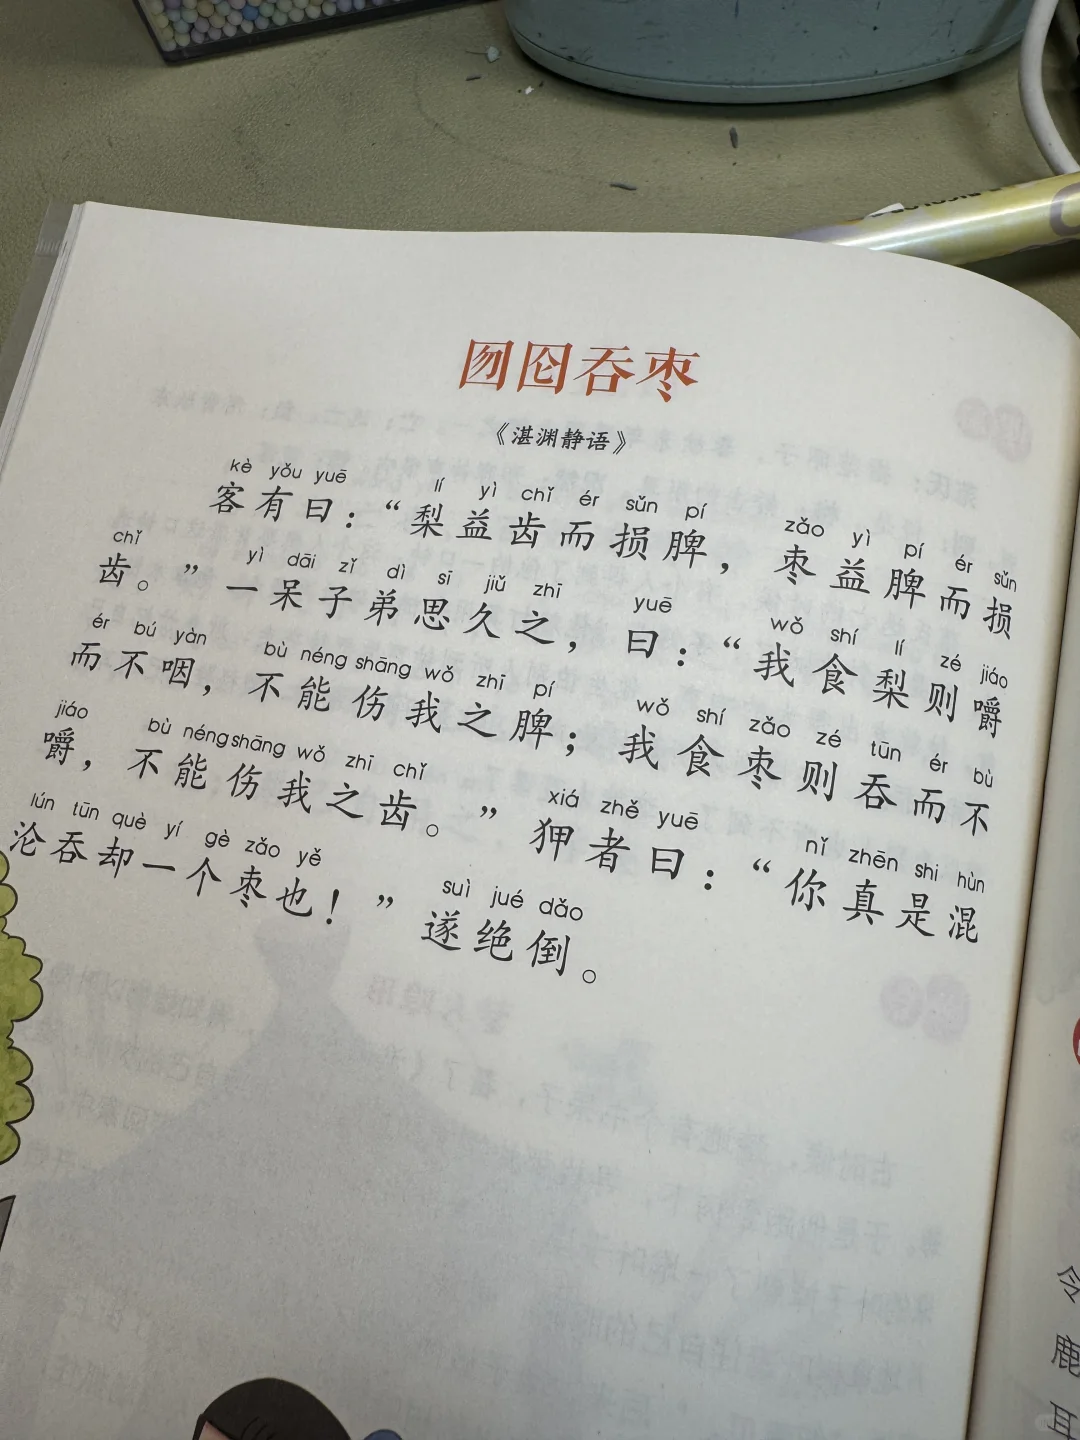 囫囵吞枣
《湛渊静语》
kè yǒu yuē lí yì chǐ ér sǔn pí zǎo yì pí ér sǔn
客有曰：“梨益齿而损脾，枣益脾而损
chǐ yì dāi zǐ dì sī jiǔ zhī yuē wǒ shí lí zé jiáo
齿。”一呆子弟思久之，曰：“我食梨则嚼
ér bú yàn bù néng shāng wǒ zhī pí wǒ shí zǎo zé tūn ér bù
而不咽，不能伤我之脾；我食枣则吞而不
jiáo bù néng shāng wǒ zhī chǐ xiá zhě yuē nǐ zhēn shi hùn
嚼，不能伤我之齿。”狎者曰：“你真是混
lún tūn què yí gè zǎo yě suì jué dǎo
沦吞却一个枣也！”遂绝倒。
令
鹿
耳